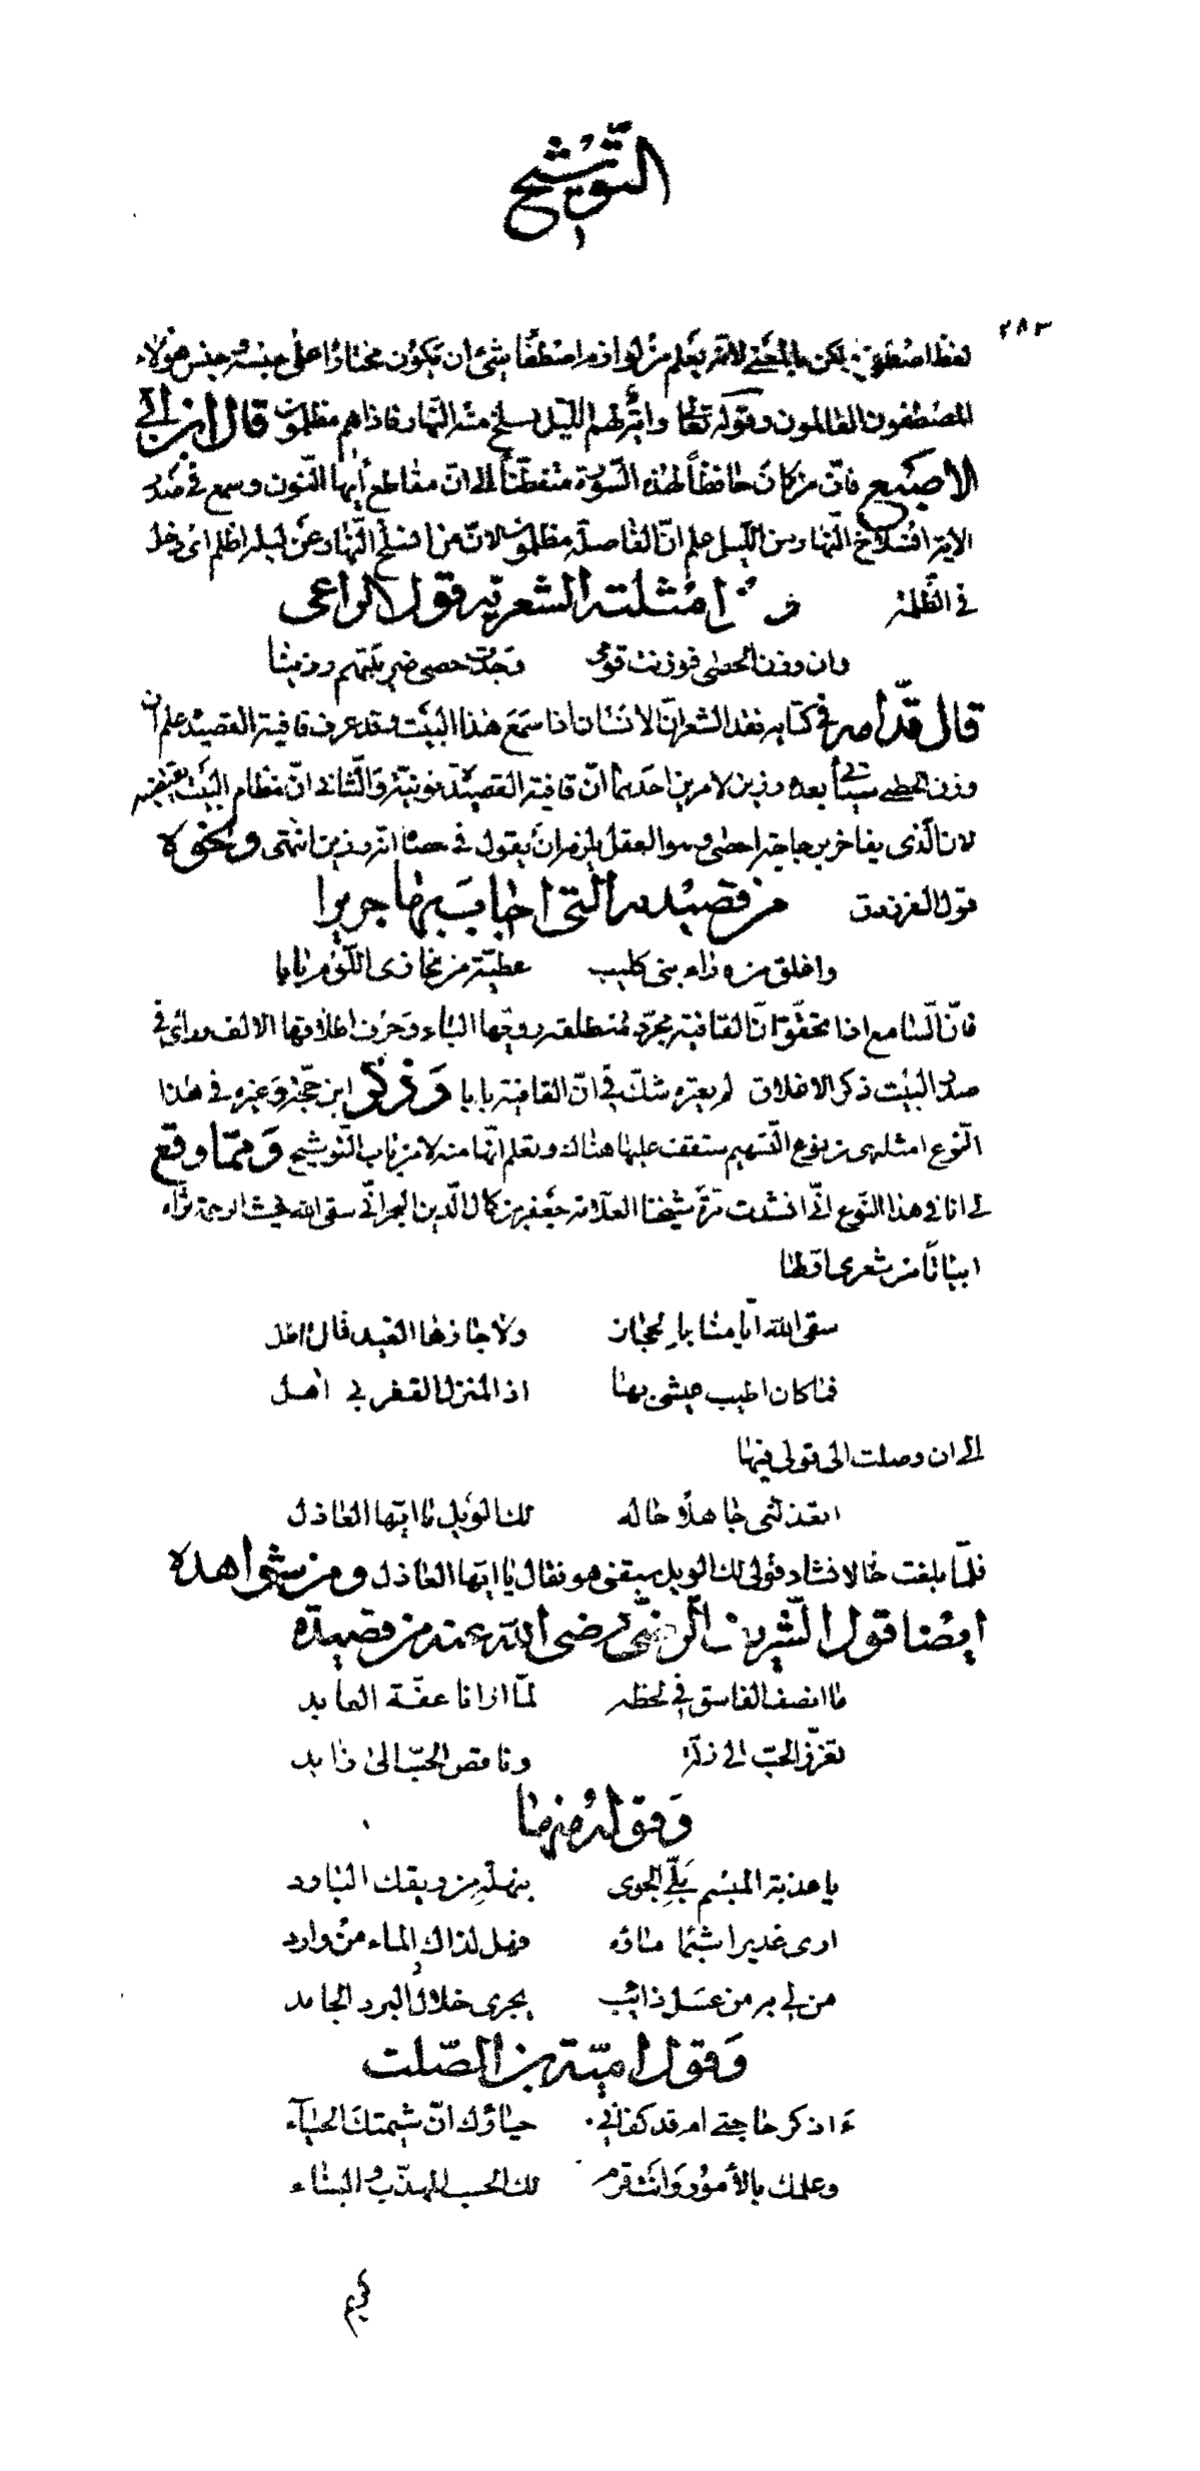 التوشيح
٢٨٣
لفظ اصطفى بل بالمعنى لانه يعلم من لوازم اصطفا شئ ان يكون مختارا على جنسه وجنس هؤلاء
المصطفون العالمون وقوله تعالى واية لهم الليل نسلخ منه النهار فاذا هم مظلمون قال ابن ابي
الاصبع فان من كان حافظاً لهذه السورة متفطناً الى ان مقاطع آيها النون وسمع في صدر
الاية انسلاخ النهار من الليل علم ان الفاصلة مظلمون لان من انسلخ النهار عن ليله اظلم اى دخل
في الظلمة ومن امثلته الشعرية قول الراعى
وان وزن الحصى فوزنت قومى وجدت حصى ضريبتهم رزينا
قال قدامه في كتابه نقد الشعر ان الانسان اذا سمع هذا البيت وقد عرف قافية القصيد علم ان
وزن الحصى سيتأتى بعده رزين لامرين احدهما ان قافية القصيدة نونية والثانى ان نظام البيت يقتضيه
لان الذى يفاخر برجاحة الحصى وهو العقل يلزم ان يقول في حصاه انه رزين انتهى ونحوه
قول الفرزدق من قصيدته التى اجاب بها جريرا
واغلق من وراء بنى كليب عطية من مخازى اللؤم بابا
فان السامع اذا تحقق ان القافية مجردة مطلقة رويها الباء وحرف اطلاقها الالف وراى في
صدر البيت ذكر الاغلاق لم يعتره شك في ان القافية بابا وذكر ابن حجة وغيره في هذا
النوع امثلة هى من نوع التسهيم ستقف عليها هناك وتعلم انها منه لا من باب التوشيح ومما وقع
لى انا فى هذا النوع انى انشدت مرة شيخنا العلامة جعفر بن كمال الدين البحرانى سقى الله غيث الرحمة ثراه
ابياتاً من شعرى اولها
سقى الله ايامنا بالحجاز ولا جازها الغيد
فما كان اطيب عيشى بها اذ المنزل القفر بى اهل
الى ان وصلت الى قولى فيها
اتعذلنى جاهلا حاله لك الويل يا ايها العاذل
فلما بلغت حال الانشاد قولى لك الويل سبقنى هو فقال يا ايها العاذل ومن شواهده
ايضا قول الشريف الرضى رضى الله عنه من قصيدة
ما انصف الفاسق في لحظه لما ارانا عفة العابد
تعزز الحب الى ذلة وناقص الحب الى زايد
وقوله منها
يا عذبة المبسم بلى الجوى بنهلة من ريقك البارد
ارى غديرا شبما ماؤه فهل لذاك الماء من وارد
من لى به من عسل ذائب يجرى خلال البرد الجامد
وقول امية بن الصلت
ءاذكر حاجتى ام قد كفانى حياؤك ان شيمتك الحياء
وعلمك بالأمور وانت قرم لك الحسب المهذب والسناء